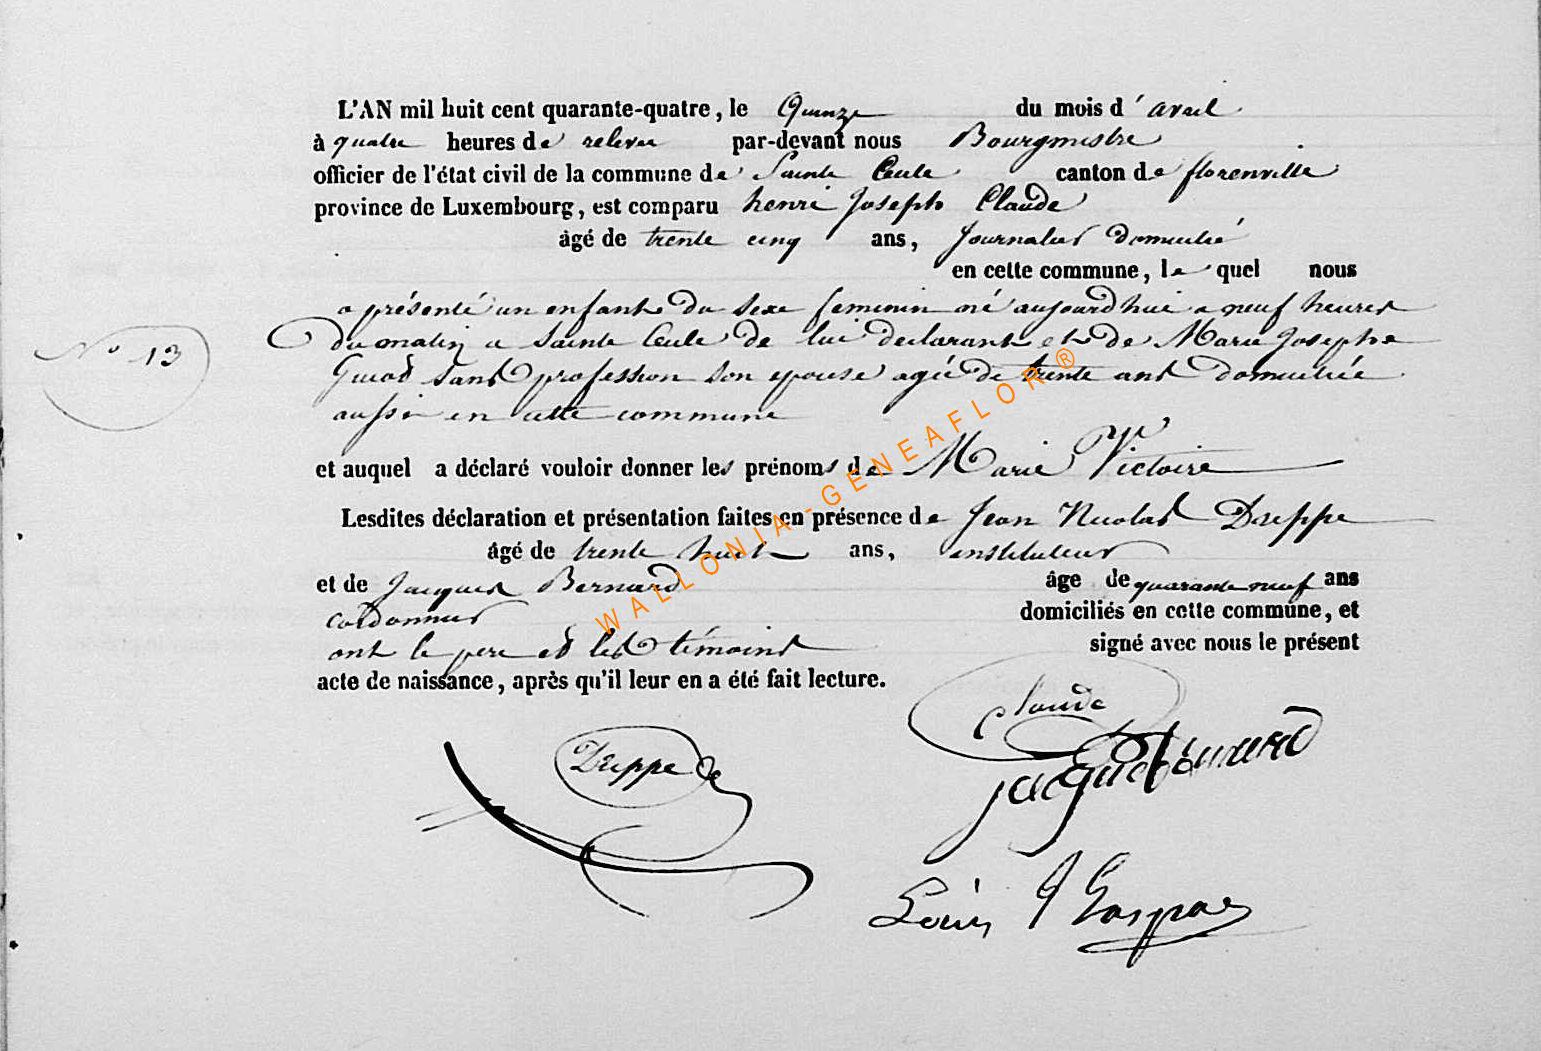 L'AN mil huit cent quarante-quatre, le Quinze du mois d'avril
à quatre heures de relevée par-devant nous Bourgmestre
officier de l'état civil de la commune de Sainte Cecile canton de florenville
province de Luxembourg, est comparu henri Joseph Claude
âgé de trente cinq ans, Journalier domicilié
en cette commune, le quel nous
a présenté un enfant du sexe feminin né aujourd'hui a neuf heures
du matin a Sainte Cecile de lui declarant et de Marie Josephe
N° 13
sans profession son epouse agée de trente ans domiciliée
aussi en cette commune
et auquel a déclaré vouloir donner les prénoms de Marie Victoire
Lesdites déclaration et présentation faites en présence de Jean Nicolas Dreppe
âgé de trente huit ans, instituteur
et de Jacques Bernard âge de quarante neuf ans
cordonnier domiciliés en cette commune, et
ont le pere et les témoins signé avec nous le présent
acte de naissance, après qu'il leur en a été fait lecture.
Claude
Dreppe
jacques bernard
Louis J Gaspar
WALLONIA-GENEAFLOR®